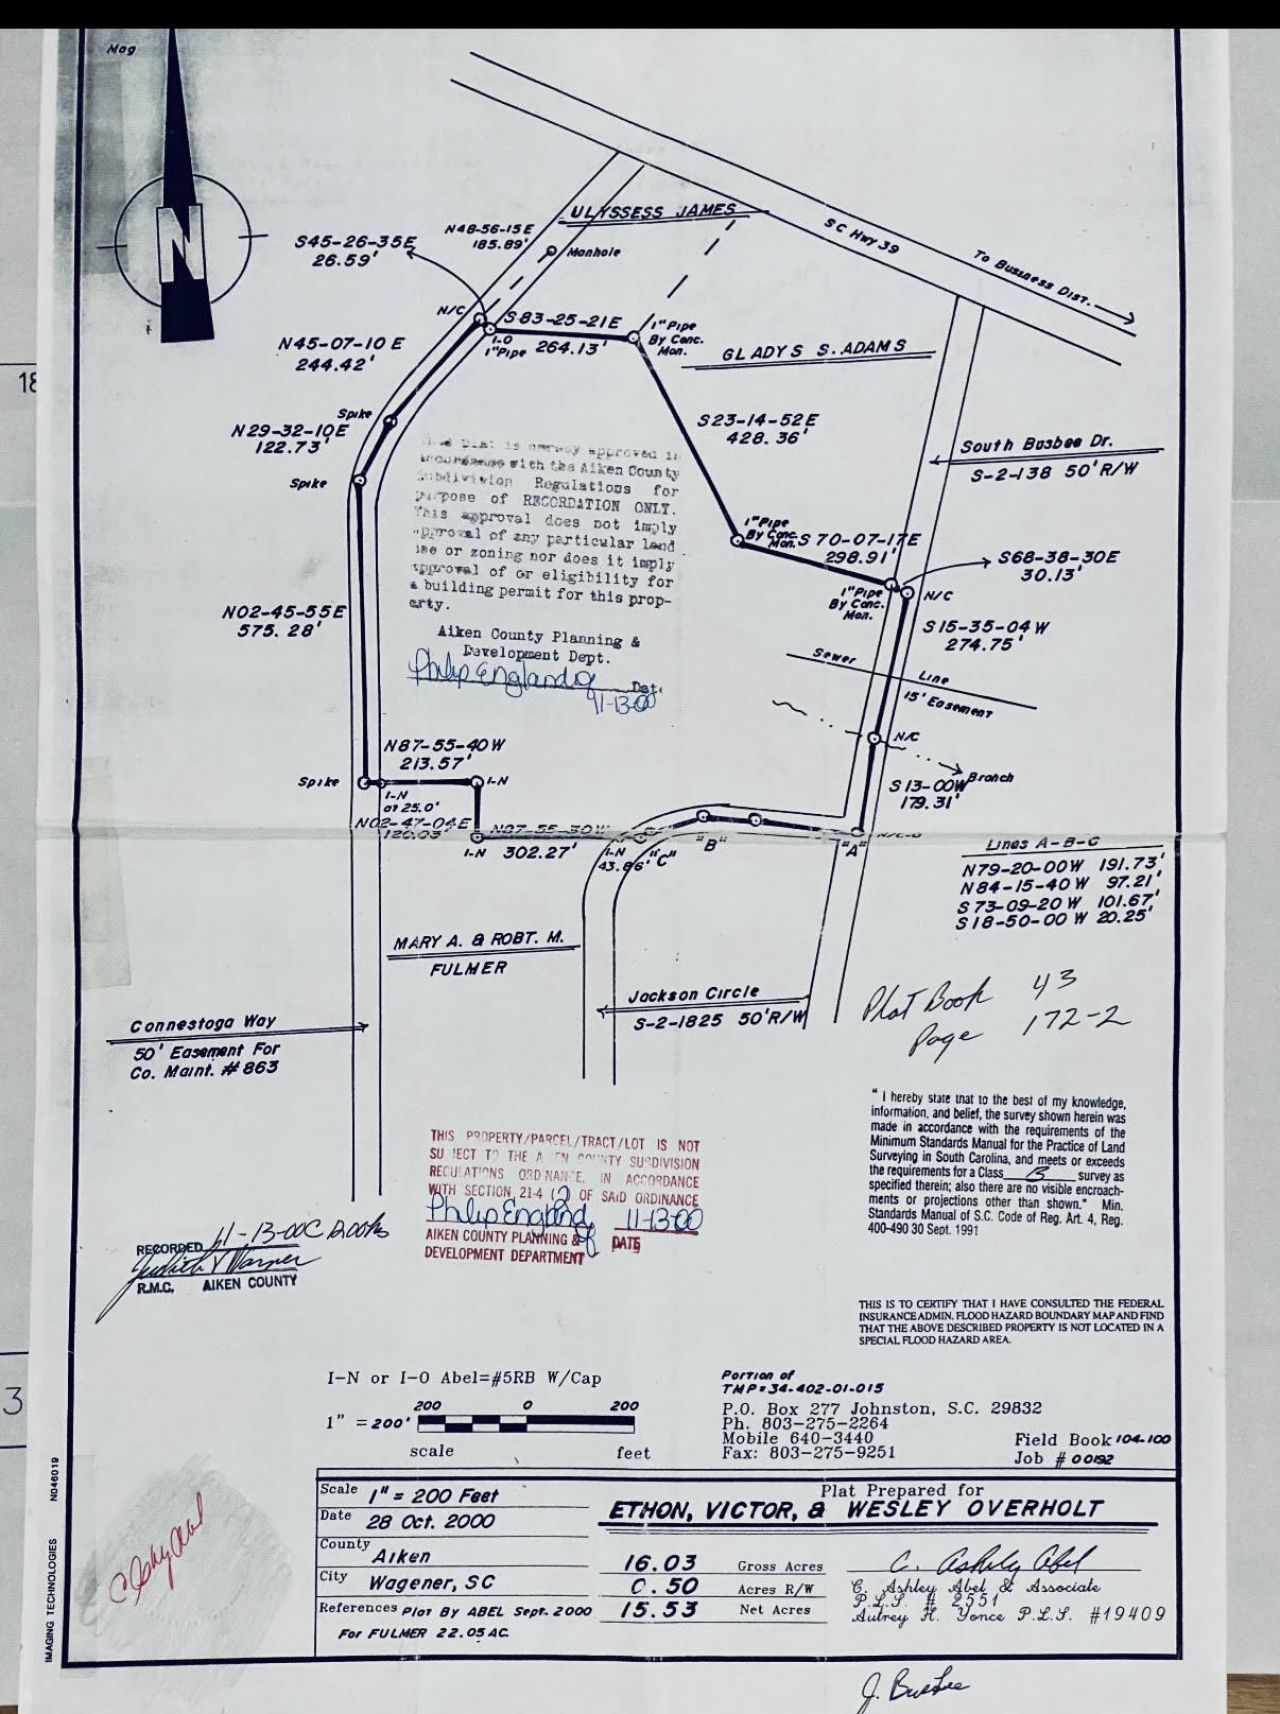 Mag
N
ULYSSESS JAMES
SC Hwy 39
To Business Dist.
N48-56-15E
185.89'
Manhole
S45-26-35E
26.59'
N/C
S83-25-21E
264.13'
I-O
1"Pipe
1"Pipe
By Conc.
Mon.
GLADYS S. ADAMS
N45-07-10E
244.42'
Spike
N29-32-10E
122.73'
Spike
S23-14-52E
428.36'
South Busbee Dr.
S-2-138 50'R/W
plat is approved in
with the Aiken County
Subdivision Regulations for
purpose of RECORDATION ONLY.
This approval does not imply
approval of any particular land
use or zoning nor does it imply
approval of or eligibility for
a building permit for this prop-
erty.
Aiken County Planning &
Development Dept.
Philip England
Date
11-13-00
1"Pipe
By Conc.
Mon.
S 70-07-17E
298.91'
S68-38-30E
30.13'
N/C
1"Pipe
By Conc.
Mon.
N02-45-55E
575.28'
S15-35-04W
274.75'
Sewer Line
15' Easement
N/C
Branch
S13-00W
179.31'
N87-55-40W
213.57'
Spike
I-N
I-N
at 25.0'
N02-47-04E
120.03'
N87-55-30W
I-N
302.27'
I-N
43.86'
"C"
"B"
"A"
Lines A-B-C
N79-20-00W 191.73'
N84-15-40W 97.21'
S73-09-20W 101.67'
S18-50-00W 20.25'
MARY A. & ROBT. M.
FULMER
Jackson Circle
S-2-1825 50'R/W
Plat Book 43
Page 172-2
Connestoga Way
50' Easement For
Co. Maint. #863
" I hereby state that to the best of my knowledge,
information, and belief, the survey shown herein was
made in accordance with the requirements of the
Minimum Standards Manual for the Practice of Land
Surveying in South Carolina, and meets or exceeds
the requirements for a Class B survey as
specified therein; also there are no visible encroach-
ments or projections other than shown." Min.
Standards Manual of S.C. Code of Reg. Art. 4, Reg.
400-490 30 Sept. 1991
THIS PROPERTY/PARCEL/TRACT/LOT IS NOT
SUBJECT TO THE AIKEN COUNTY SUBDIVISION
REGULATIONS ORDINANCE, IN ACCORDANCE
WITH SECTION 21-4 (2) OF SAID ORDINANCE
Philip England 11-13-00
AIKEN COUNTY PLANNING & DATE
DEVELOPMENT DEPARTMENT
RECORDED 11-13-00
Judith V Warner
R.M.C. AIKEN COUNTY
THIS IS TO CERTIFY THAT I HAVE CONSULTED THE FEDERAL
INSURANCE ADMIN. FLOOD HAZARD BOUNDARY MAP AND FIND
THAT THE ABOVE DESCRIBED PROPERTY IS NOT LOCATED IN A
SPECIAL FLOOD HAZARD AREA.
I-N or I-O Abel=#5RB W/Cap
200 0 200
1" = 200'
scale feet
Portion of
TMP#34-402-01-015
P.O. Box 277 Johnston, S.C. 29832
Ph. 803-275-2264
Mobile 640-3440
Fax: 803-275-9251
Field Book 104-100
Job # 00192
Scale 1" = 200 Feet
Date 28 Oct. 2000
County Aiken
City Wagener, SC
References Plat By ABEL Sept. 2000
For FULMER 22.05 AC.
Plat Prepared for
ETHON, VICTOR, & WESLEY OVERHOLT
16.03 Gross Acres
0.50 Acres R/W
15.53 Net Acres
C. Ashley Abel
C. Ashley Abel & Associate
P.L.S. # 2551
Autrey H. Yonce P.L.S. #19409
C Ashley Abel
IMAGING TECHNOLOGIES N046019
J. Busbee
18
3